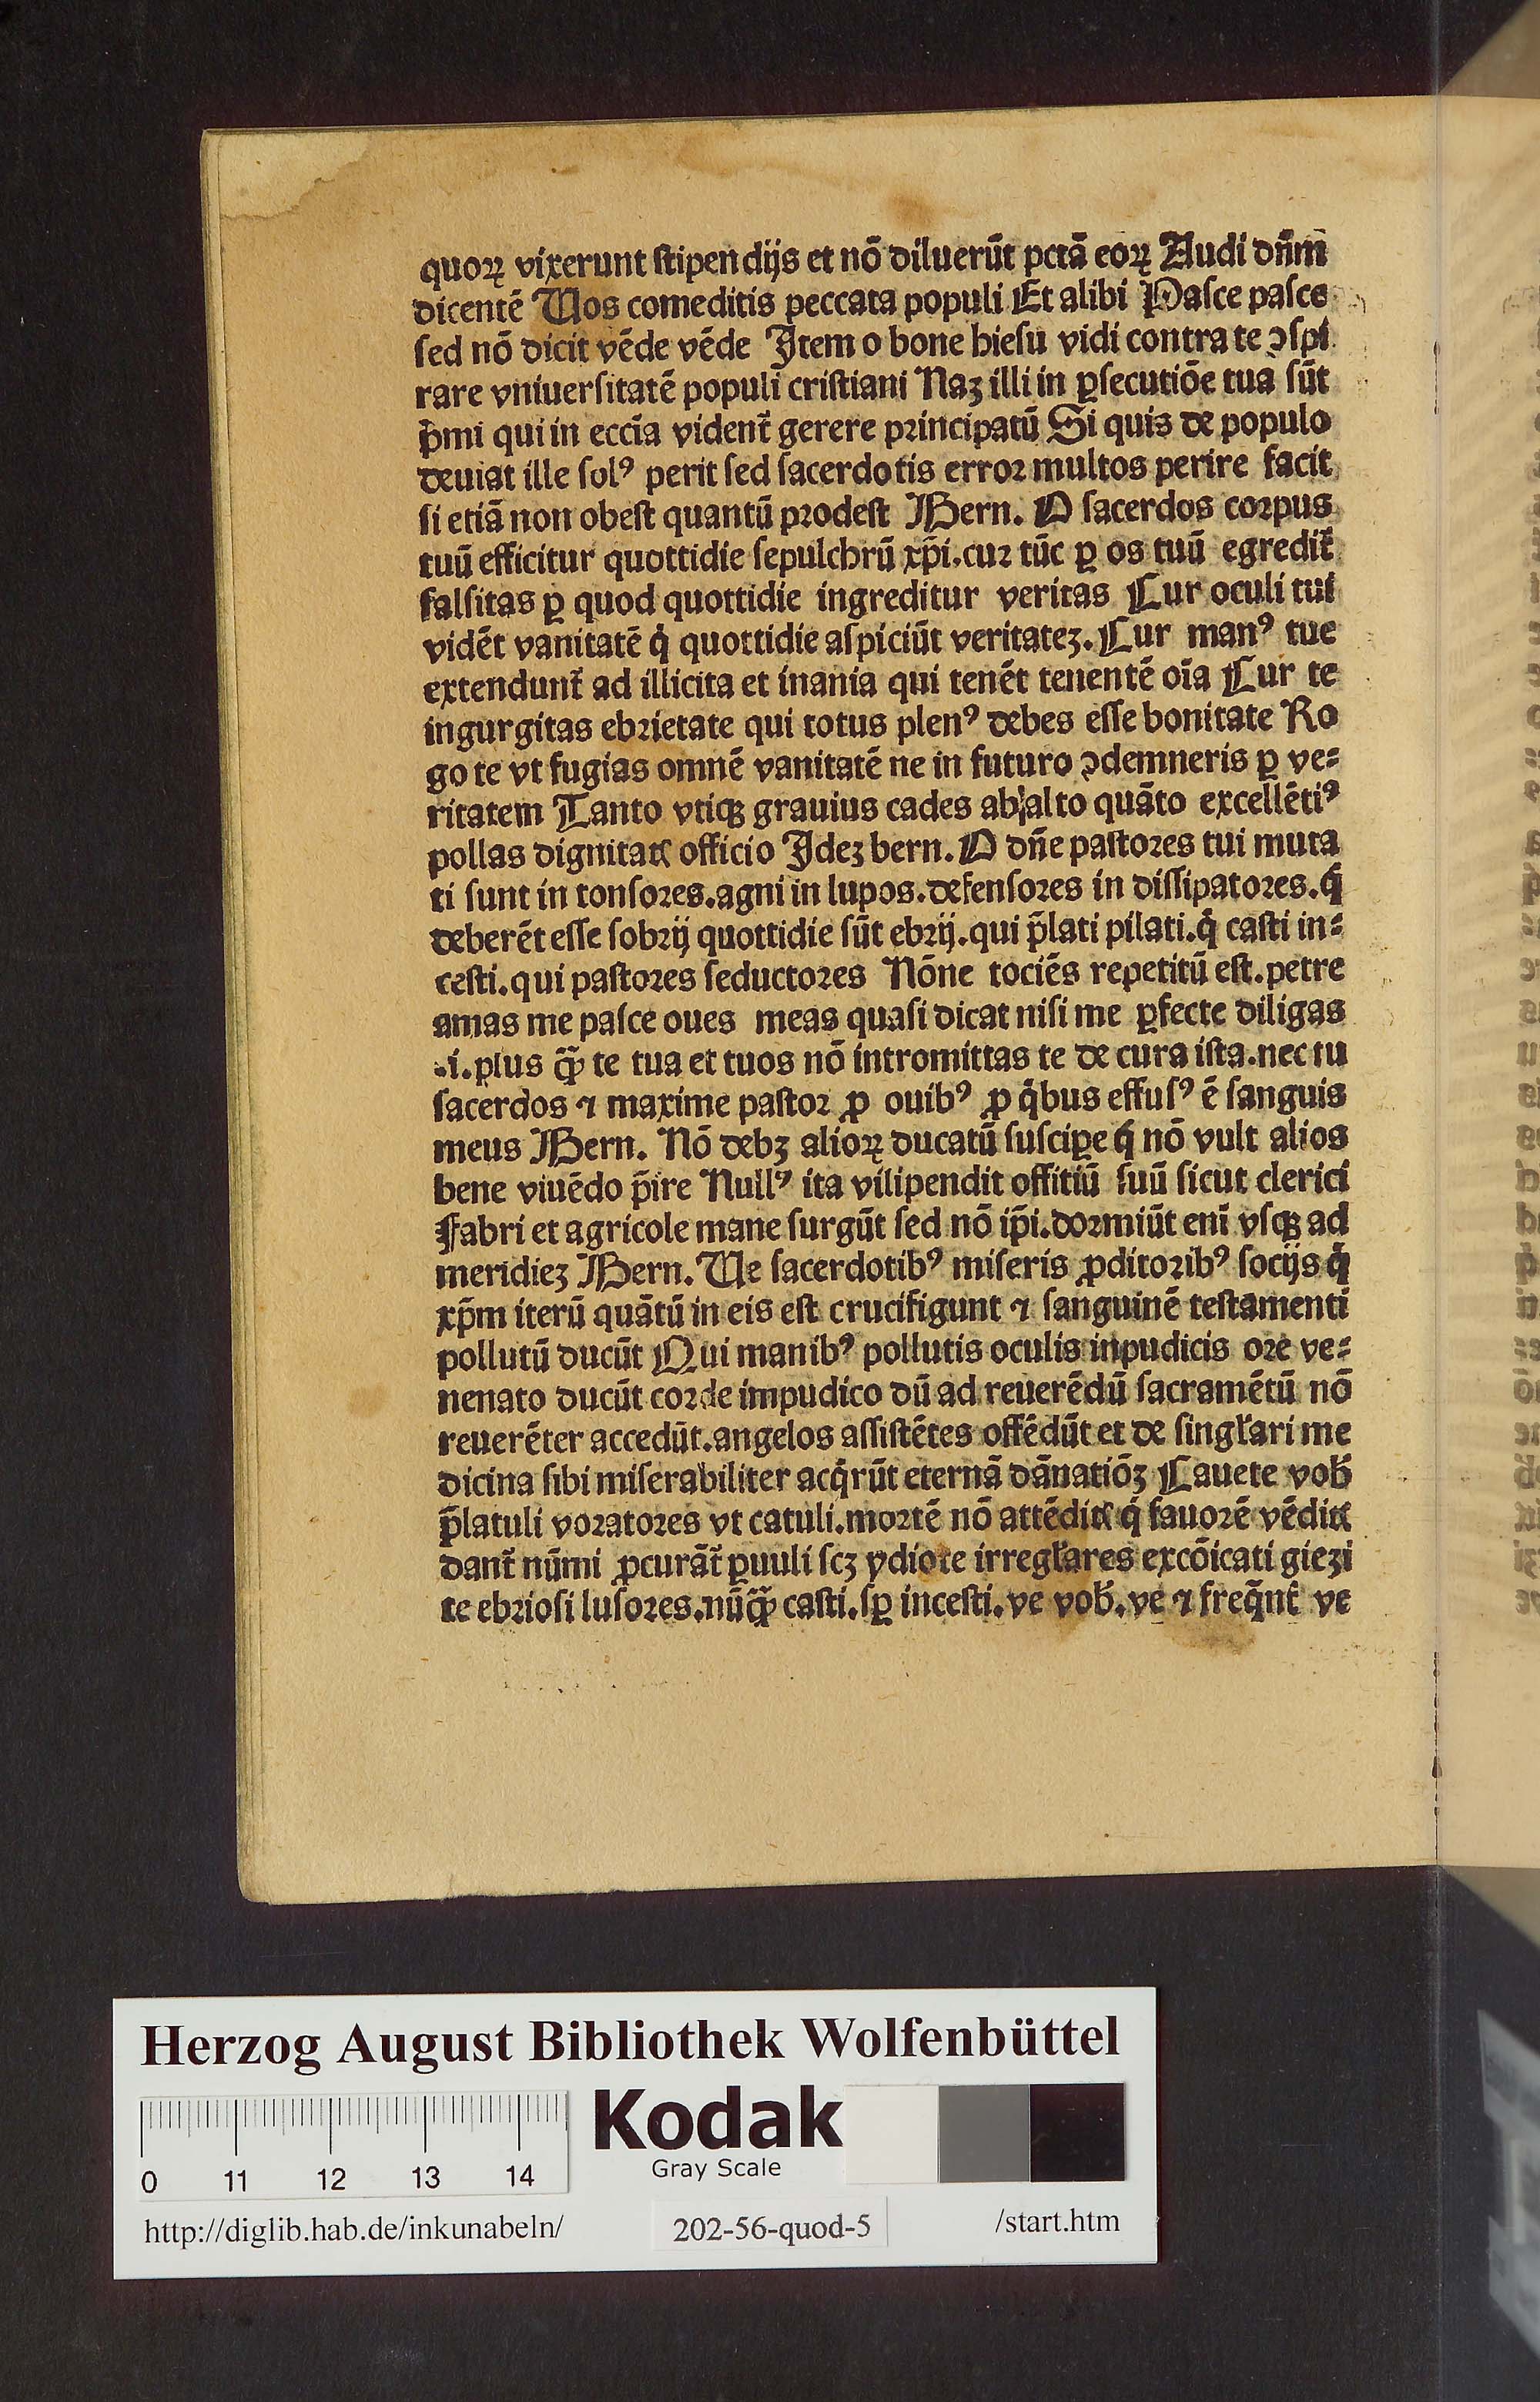 quoꝝ vixerunt ſtipendijs et nō diluerūt pctā eoꝝ Audi dn̄m
dicentē Uos comeditis peccata populi Et alibi Paſce paſce
ſed nō dicit vēde vēde Item o bone hieſu vidi contra te ꝯſpi
rare vniuerſitatē populi criſtiani Naꝫ illi in ꝑſecutiōe tua ſūt
p̄mi qui in eccīa vident᷑ gerere pꝛincipatū Si quis de populo
deuiat ille ſolꝰ perit ſed ſacerdotis erroꝛ multos perire facit
ſi etiā non obeſt quantū pꝛodeſt Bern. O ſacerdos coꝛpus
tuū efficitur quottidie ſepulchrū xp̄i.cuꝛ tūc ꝑ os tuū egredit᷑
falſitas ꝑ quod quottidie ingreditur veritas Cur oculi tui
vidēt vanitatē qͥ quottidie aſpiciūt veritateꝫ. Cur manꝰ tue
extendunt᷑ ad illicita et inania qui tenēt tenentē oīa Cur te
ingurgitas ebꝛietate qui totus plenꝰ debes eſſe bonitate Ro
go te vt fugias omnē vanitatē ne in futuro ꝯdemneris ꝑ ve⸗
ritatem Tanto vtiqꝫ grauius cades ab alto quāto excellētiꝰ
pollas dignitatꝭ officio Ideꝫ bern. O dn̄e paſtoꝛes tui muta
ti ſunt in tonſoꝛes.agni in lupos.defenſoꝛes in diſſipatoꝛes.qͥ
deberēt eſſe ſobꝛij quottidie ſūt ebꝛij.qui p̄lati pilati.qͥ caſti in⸗
ceſti.qui paſtoꝛes ſeductoꝛes Nōne tociēs repetitū eſt.petre
amas me paſce oues meas quaſi dicat niſi me ꝑfecte diligas
.i.plus qꝫ̄ te tua et tuos nō intromittas te de cura iſta.nec tu
ſacerdos ⁊ maxime paſtoꝛ ꝓ ouibꝰ ꝓ qͥbus effuſꝰ ē ſanguis
meus Bern. Nō debꝫ alioꝝ ducatū ſuſciꝑe qͥ nō vult alios
bene viuēdo p̄ire Nullꝰ ita vilipendit offitiū ſuū ſicut clerici
Fabri et agricole mane ſurgūt ſed nō ip̄i.doꝛmiūt eni̅ vſqꝫ ad
meridieꝫ Bern. Ue ſacerdotibꝰ miſeris ꝓditoꝛibꝰ ſocijs qͥ
xp̄m iterū quātū in eis eſt crucifigunt ⁊ ſanguinē teſtamenti
pollutū ducūt Qui manibꝰ pollutis oculis inpudicis oꝛe ve⸗
nenato ducūt coꝛde impudico dū ad reuerēdū ſacramētū nō
reuerēter accedūt.angelos aſſiſtētes offēdūt et de ſingl̓ari me
dicina ſibi miſerabiliter acqͥrūt eternā dānatiōꝫ Cauete vob̓
p̄latuli voꝛatoꝛes vt catuli.moꝛtē nō attēditꝭ qͥ fauoꝛē vēditꝭ
dant᷑ nūmi ꝓcurāt᷑ ꝑuuli ſcꝫ ydiote irregl̓ares excōicati giezi
te ebꝛioſi luſoꝛes.nūqꝫ̄ caſti.ſꝑ inceſti.ve vob̓.ve ⁊ freq̄nt᷑ ve
Herzog August Bibliothek Wolfenbüttel
Kodak
Gray Scale
0 11 12 13 14
http://diglib.hab.de/inkunabeln/ 202-56-quod-5 /start.htm